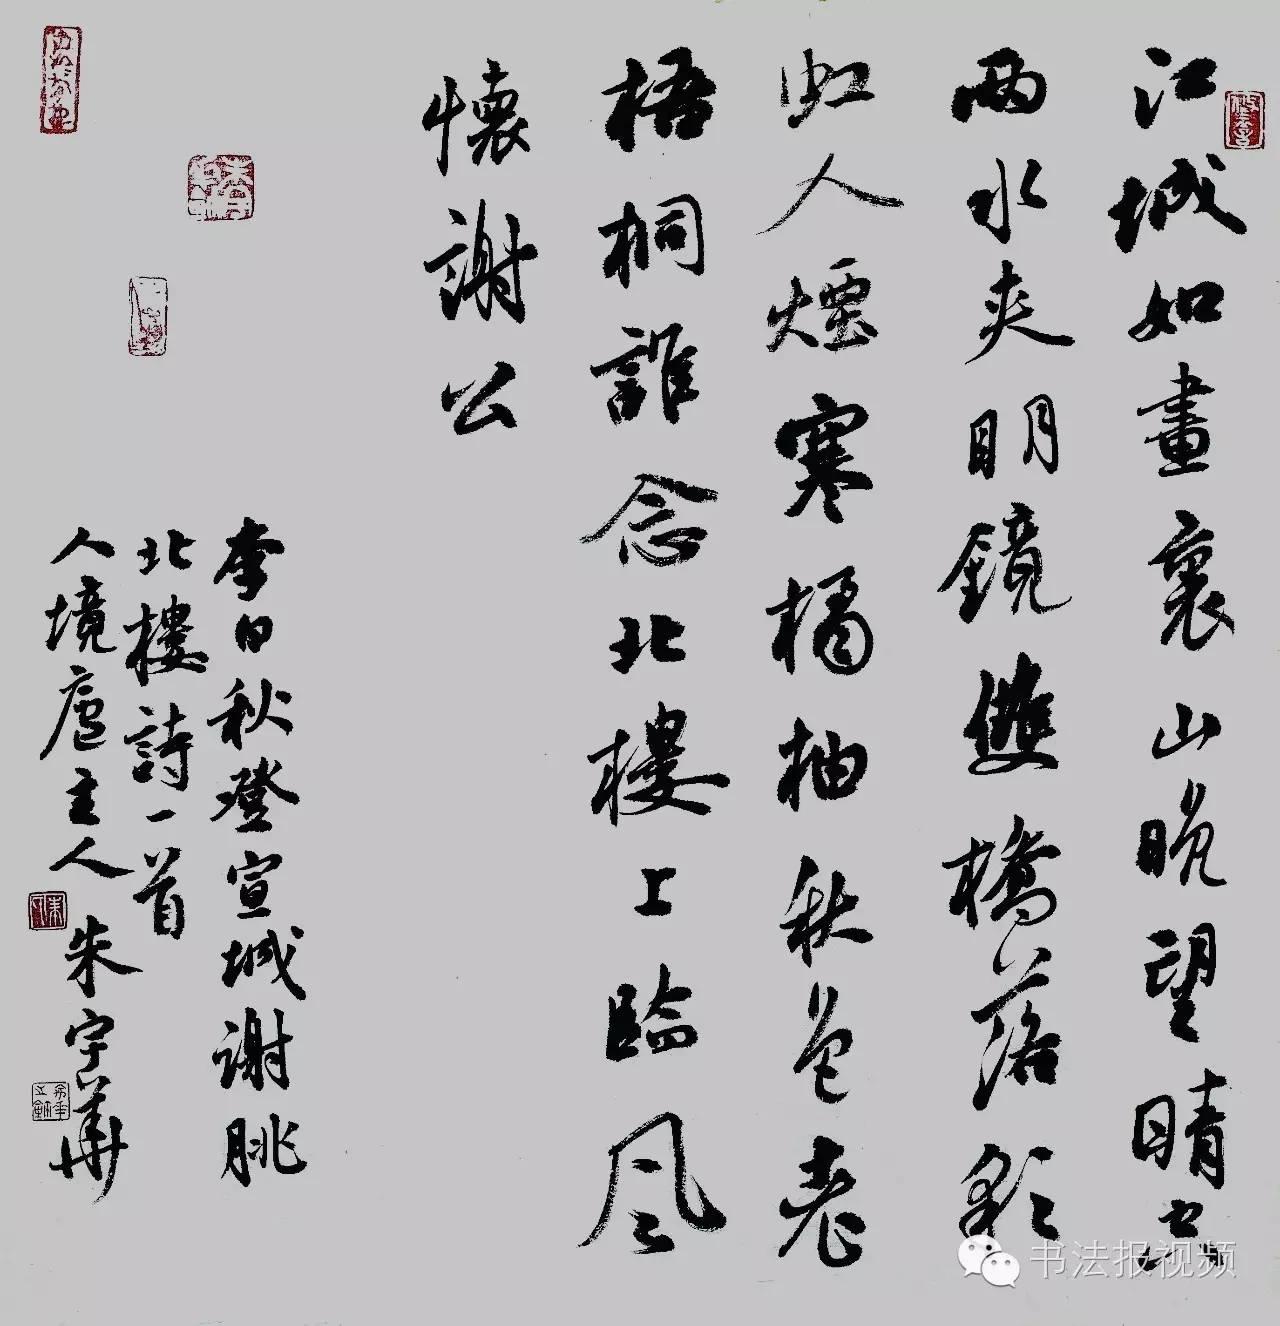 江城如畫裏山晚望晴空
兩水夾明鏡雙橋落彩
虹人煙寒橘柚秋色老
梧桐誰念北樓上臨風
懷謝公
李白秋澄宣城謝朓
北樓詩一首
人境廬主人朱宇華
书法报视频